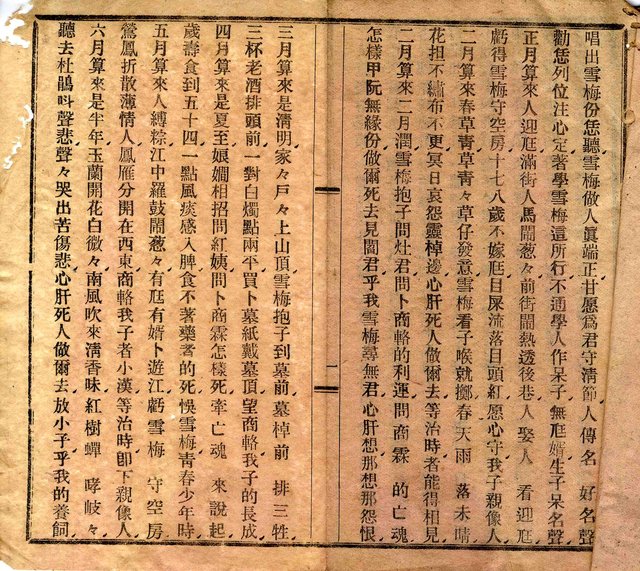 唱出雪梅份恁聽雪梅做人眞端正甘愿爲君守清節人傳名 好名聲
勸恁列位注心定著學雪梅這所行不通學人作呆子無尫婿生子呆名聲
正月算來人迎尫滿街人馬鬧葱々前街鬧熱透後巷人 娶人 看迎尫
虧得雪梅守空房十七八歲不嫁尫目屎流落目頭紅愿心守我子親像人
二月算來春草青々草仔發意雪梅看子喉就擲春天雨 落未晴
花担不繡布不更冥日哀怨靈棹邊心肝死人做爾去等治時者能得相見
二月算來二月潤雪梅抱子問灶君問卜商輅的利運問商霖 的亡魂
怎樣甲阮無緣份做爾死去見閻君乎我雪梅尋無君心肝想那想那怨恨
三月算來是清明家々戶々上山頂雪梅抱子到墓前墓棹前 排三牲
三杯老酒排頭前一對白燭點兩平買卜墓紙戴墓頂望商輅我子的長成
四月算來是夏至娘嫺相招問紅姨問卜商霖怎樣死牽亡魂 來說起
歲壽食到五十四一點風痰感入脾食不著藥者的死悞雪梅青春少年時
五月算來人縛粽江中羅鼓鬧葱々有尫有婿卜遊江虧雪梅 守空房
鶯鳳折散薄情人鳳雁分開在西東商輅我子者小漢等治時卽下親像人
六月算來是半年玉蘭開花白微々南風吹來清香味紅樹蟬 哮岐々
聽去杜鵑呌聲悲聲々哭出苦傷悲心肝死人做爾去放小子乎我的養飼
一